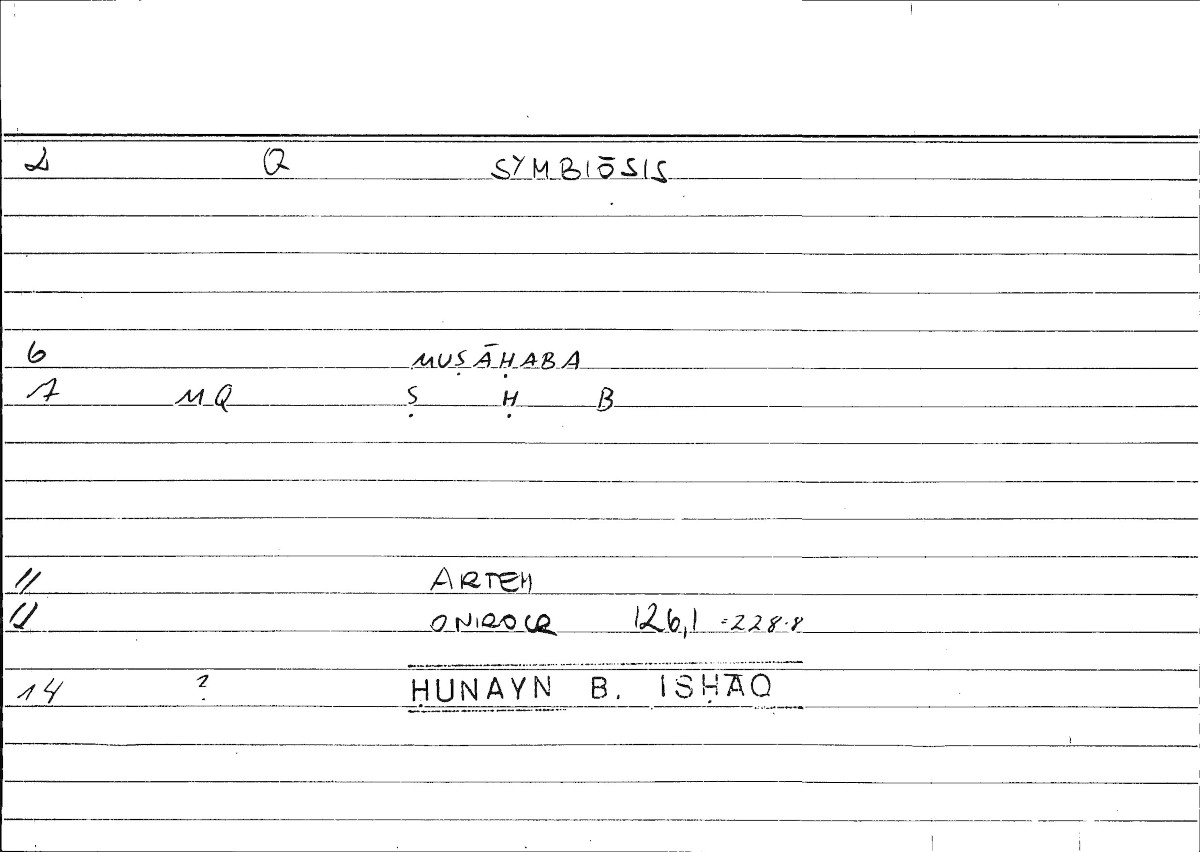 2 Q SYMBIŌSIS
6 MUṢĀḤABA
7 MQ Ṣ Ḥ B
11 ARTEM
12 ONIROCR 126,1 =228.8
14 ? ḤUNAYN B. ISḤĀQ